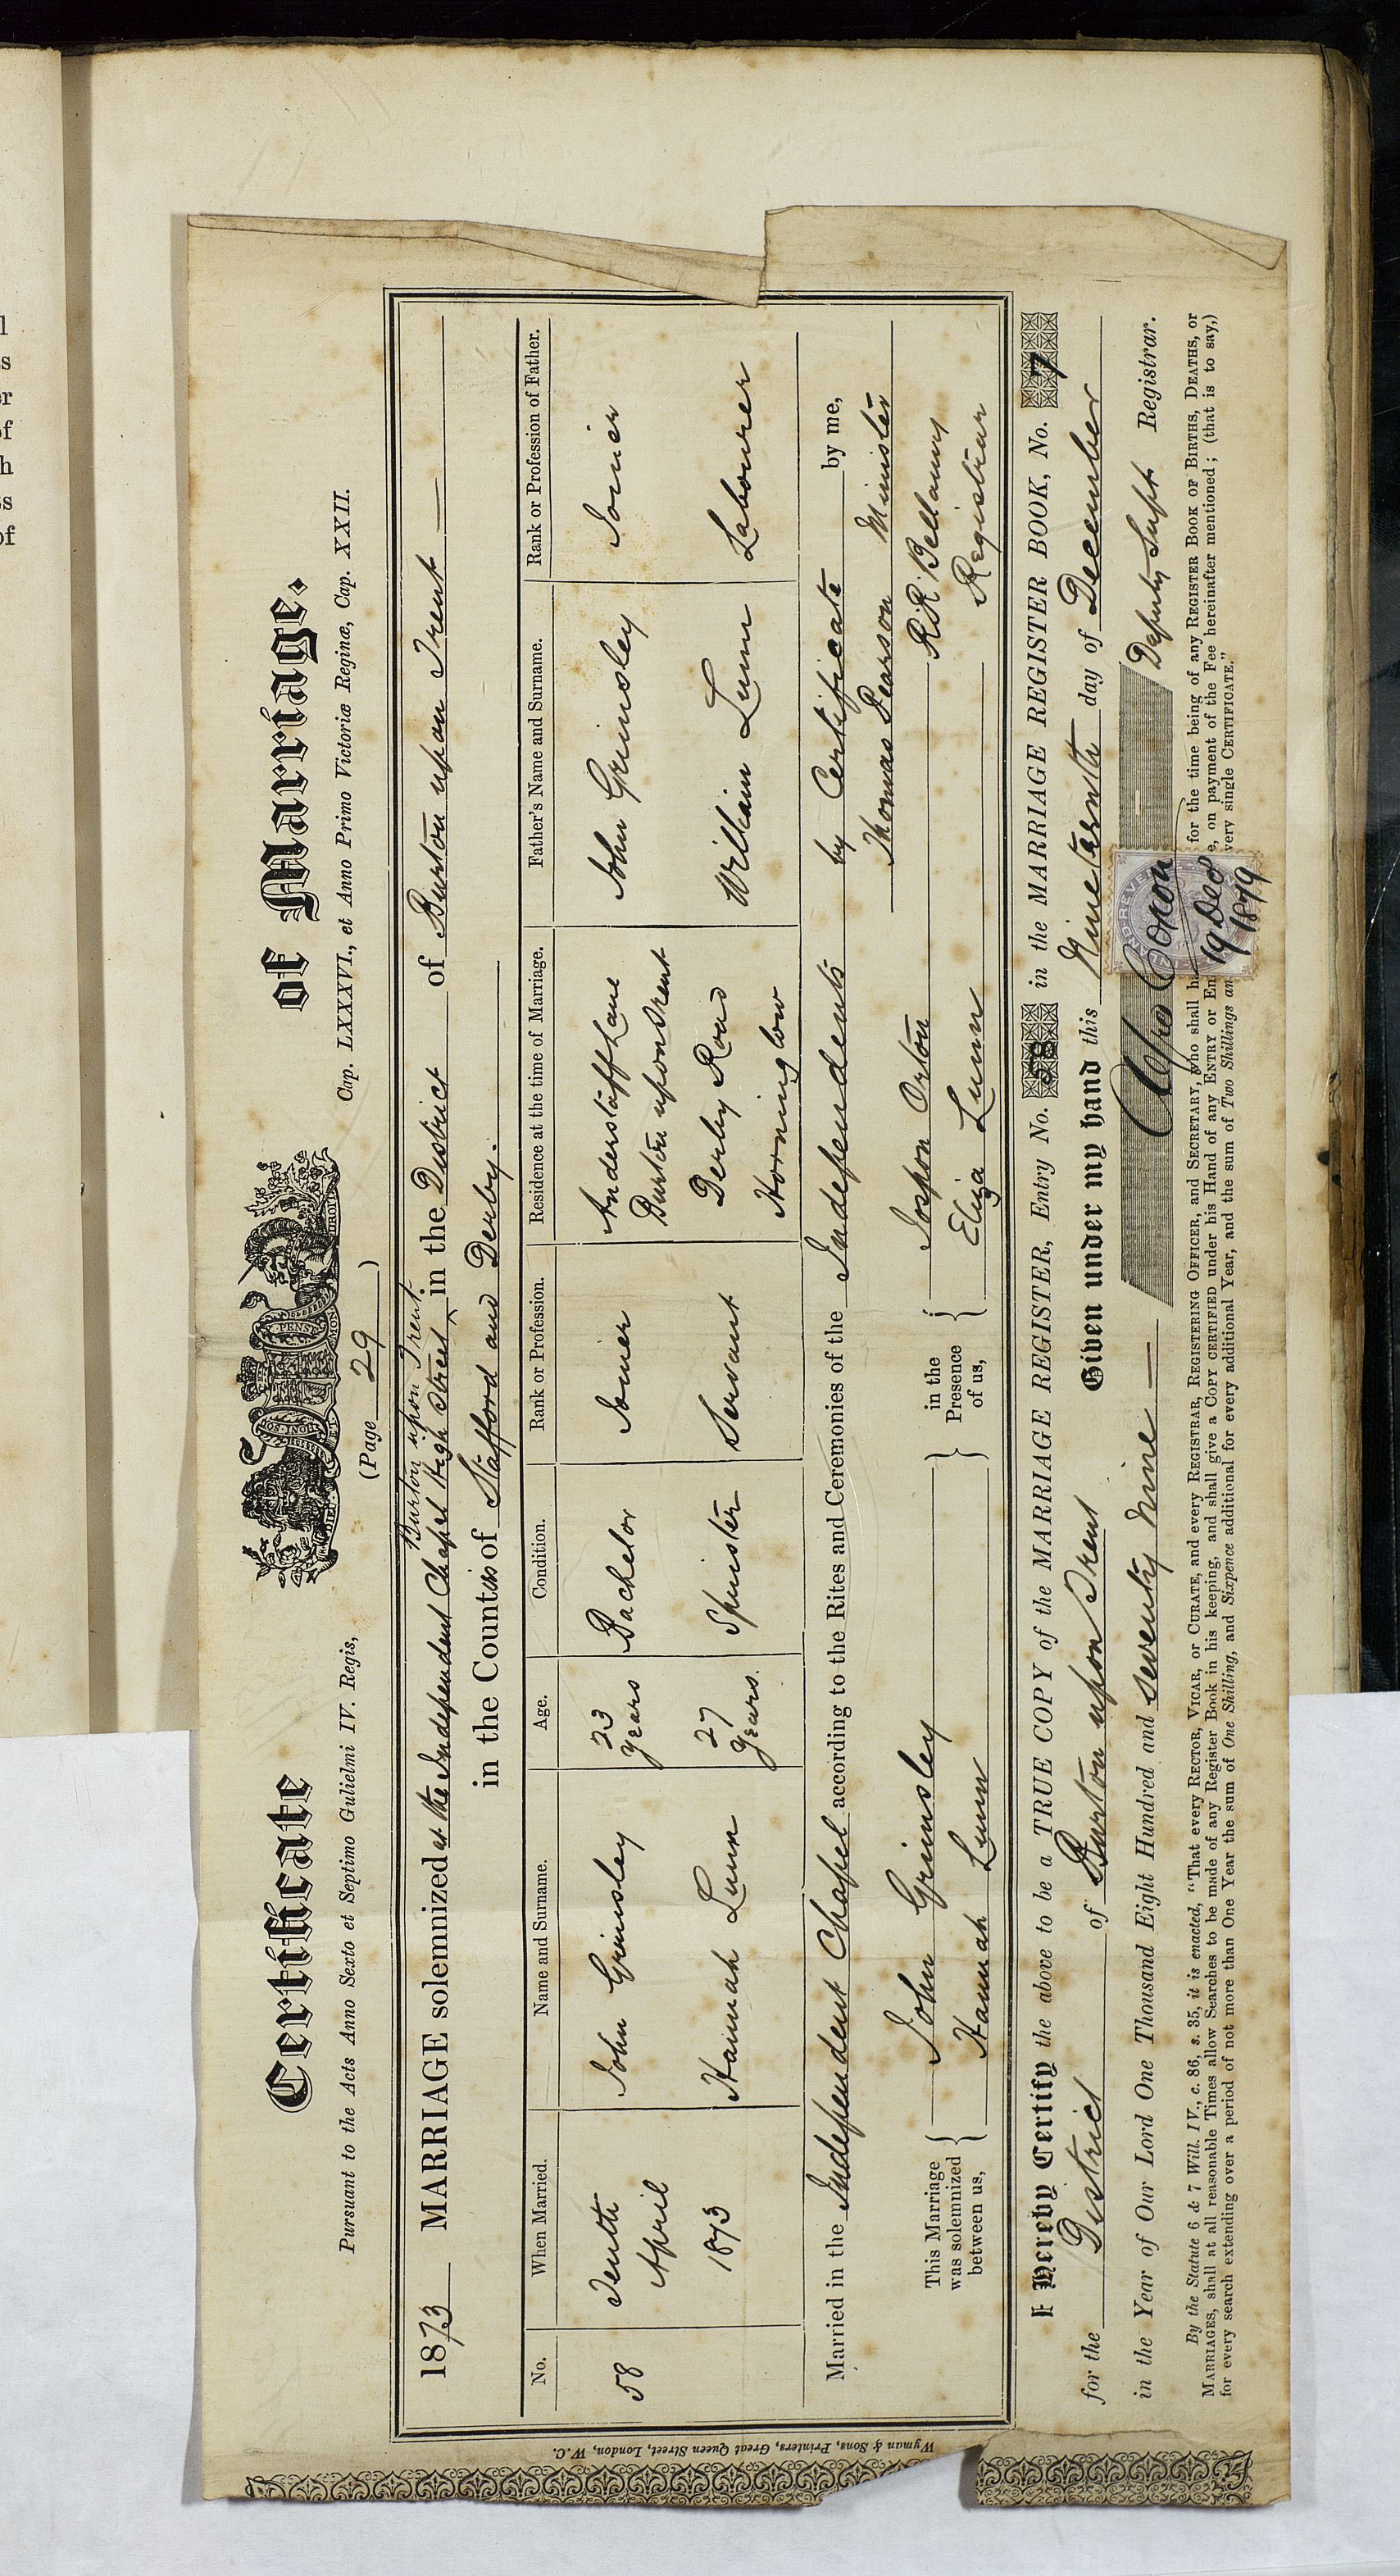 l
s
er
of
h
ss
of
Certificate of Marriage.
Pursuant to the Acts Anno Sexto et Septimo Gulielmi IV. Regis, Cap. LXXXVI., et Anno Primo Victoriæ Reginæ, Cap. XXII.
(Page 29)
Burton upon Trent
1873 MARRIAGE solemnized at the Independent Chapel High Street in the District of Burton upon Trent
in the Counties of Stafford and Derby.
No. When Married. Name and Surname. Age. Condition. Rank or Profession. Residence at the time of Marriage. Father's Name and Surname. Rank or Profession of Father.
58 Tenth April 1873 John Grimsley 23 years Bachelor Joiner Anderstaff Lane Burton upon Trent John Grimsley Joiner
Hannah Lunn 27 years. Spinster Servant Derby Road Horninglow William Lunn Labourer
Married in the Independent Chapel according to the Rites and Ceremonies of the Independents by Certificate by me,
Thomas Pearson Minister
This Marriage was solemnized between us, John Grimsley in the Presence of us, Orton R. R. Bellamy
Hannah Lunn Eliza Lunn Registrar
I Hereby Certify the above to be a TRUE COPY of the MARRIAGE REGISTER, Entry No. 58 in the MARRIAGE REGISTER BOOK, No. 7
for the District of Burton upon Trent Given under my hand this Nineteenth day of December
in the Year of Our Lord One Thousand Eight Hundred and seventy nine Coxon Deputy Supt Registrar.
19 Dec 1879
By the Statute 6 & 7 Will. IV., c. 86, s. 35, it is enacted, "That every RECTOR, VICAR, or CURATE, and every REGISTRAR, REGISTERING OFFICER, and SECRETARY, who shall h for the time being of any REGISTER BOOK OF BIRTHS, DEATHS, or
MARRIAGES, shall at all reasonable Times allow Searches to be made of any Register Book in his keeping, and shall give a COPY CERTIFIED under his Hand of any ENTRY or En e, on payment of the Fee hereinafter mentioned; (that is to say,)
for every search extending over a period of not more than One Year the sum of One Shilling, and Sixpence additional for every additional Year, and the sum of Two Shillings an very single CERTIFICATE."
Wyman & Sons, Printers, Great Queen Street, London, W.C.